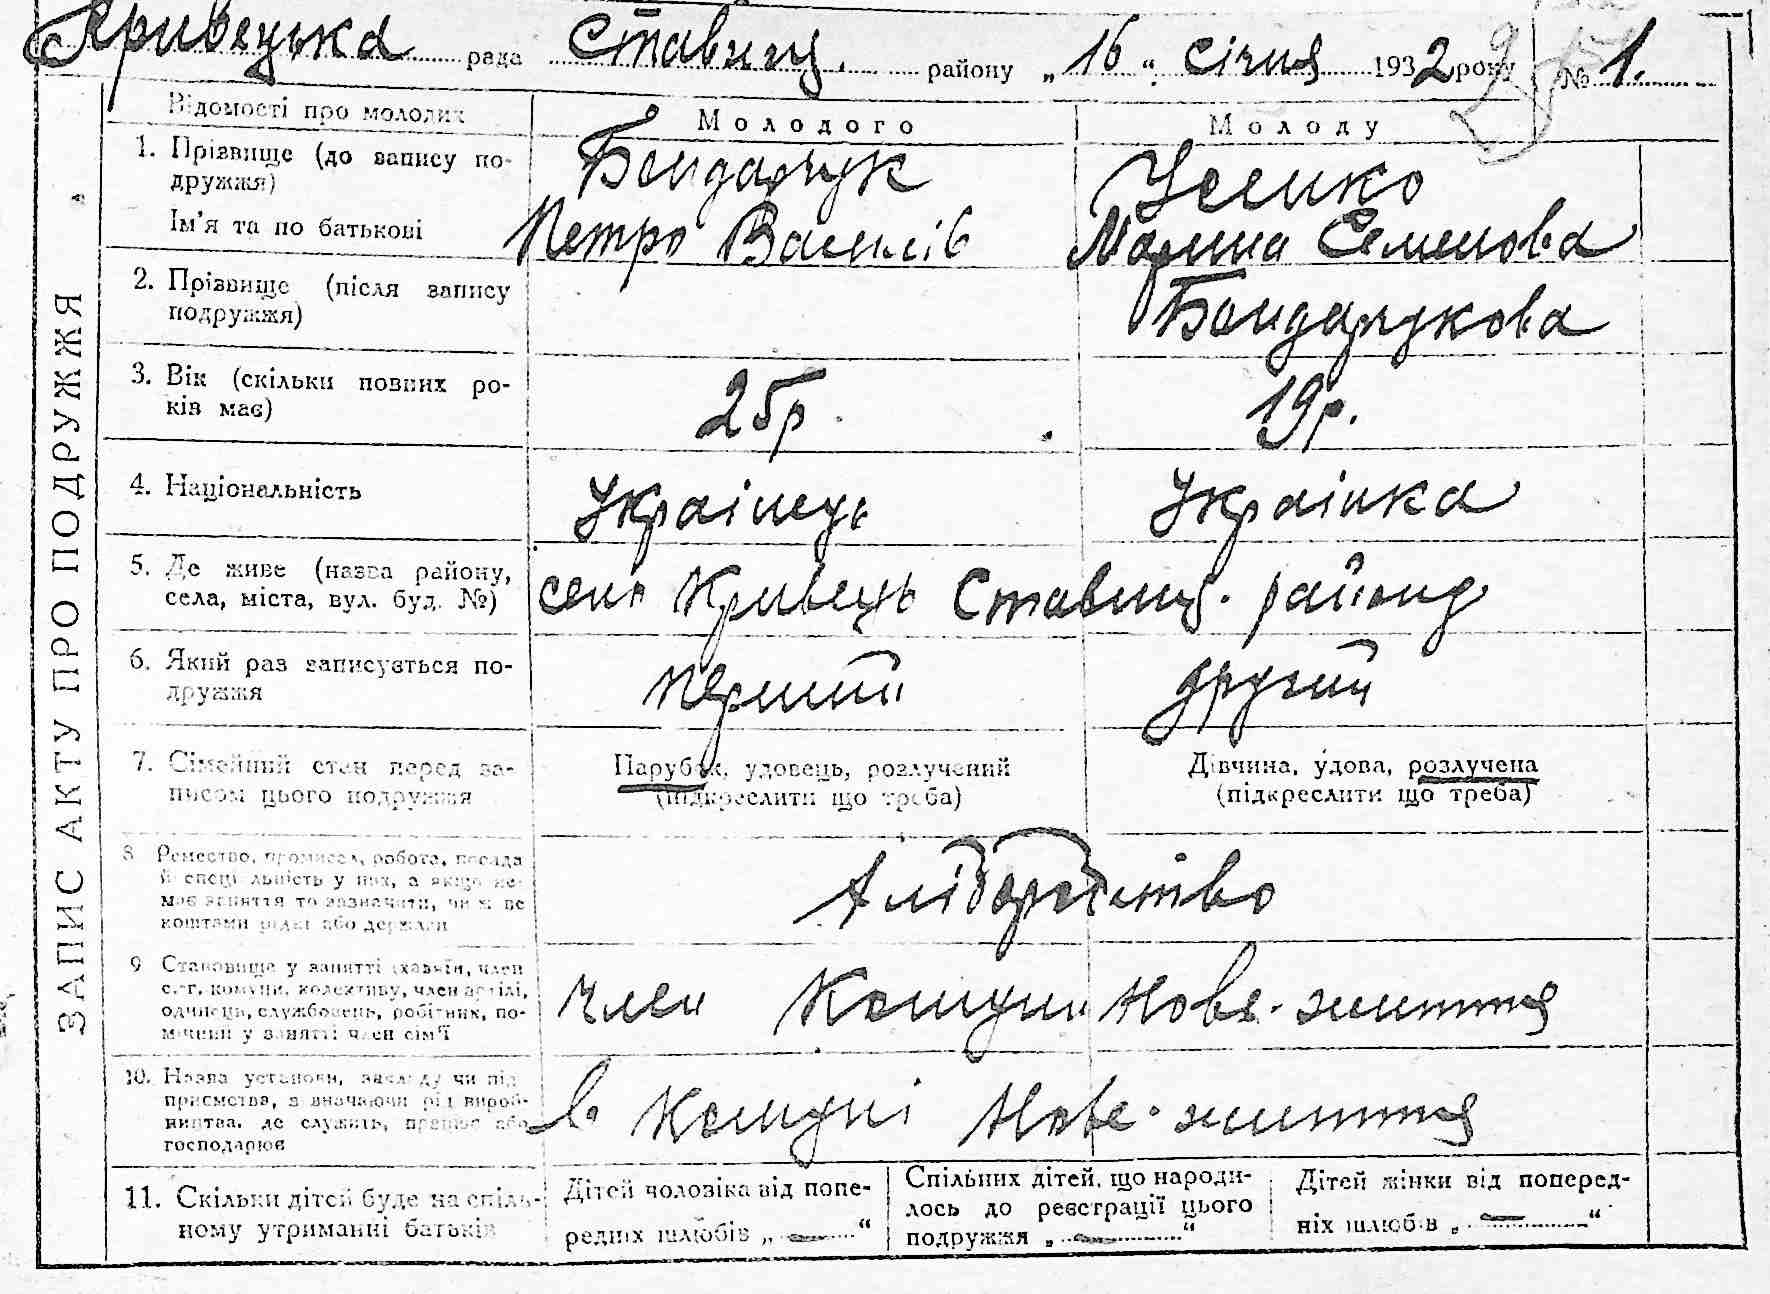 Кривецька рада Ставищ. району „16" січня 1932 року № 1.
Відомості про молодих
Молодого
Молоду
1. Прізвище (до запису по-
дружжя)
Бондарчук
Усенко
Ім'я та по батькові
Петро Василів
Марина Семенова
2. Прізвище (після запису
подружжя)
Бондарчукова
3. Вік (скільки повних ро-
ків має)
25р.
19р.
4. Національність
Українець
Українка
5. Де живе (назва району,
села, міста, вул. буд. №)
село Кривець Ставищ. району
6. Який раз записується по-
дружжя
перший
другий
7. Сімейний стан перед за-
писом цього подружжя
Парубок, удовець, розлучений
(підкреслити що треба)
Дівчина, удова, розлучена
(підкреслити що треба)
8 Ремество, промисел, робота, посада
й спеціяльність у них, а якщо не-
має заняття то зазначити, чи живе
коштами рідні або держави
хліборобство
9 Становище у занятті (хазяїн, член
с.-г. комуни, колективу, член артілі,
одинець, службовець, робітник, по-
мічний у занятті член сім'ї
член Комуни Нове-життя
10. Назва установи, закладу чи під-
приємства, зазначаючи рід вироб-
ництва, де служить, працює або
господарює
в Комуні Нове-життя
11. Скільки дітей буде на спіль-
ному утриманні батьків
Дітей чоловіка від попе-
редніх шлюбів „ — "
Спільних дітей, що народи-
лось до реєстрації цього
подружжя „ — "
Дітей жінки від поперед-
ніх шлюбів „ — "
ЗАПИС АКТУ ПРО ПОДРУЖЖЯ